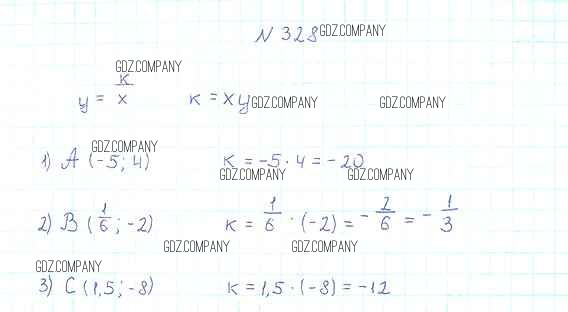 N 328 GDZ.COMPANY
GDZ.COMPANY
y = k/x k = xy GDZ.COMPANY GDZ.COMPANY
GDZ.COMPANY
1) A (-5; 4) k = -5 · 4 = -20
GDZ.COMPANY GDZ.COMPANY
2) B (1/6; -2) k = 1/6 · (-2) = -2/6 = -1/3
GDZ.COMPANY GDZ.COMPANY
GDZ.COMPANY
3) C (1,5; -8) k = 1,5 · (-8) = -12